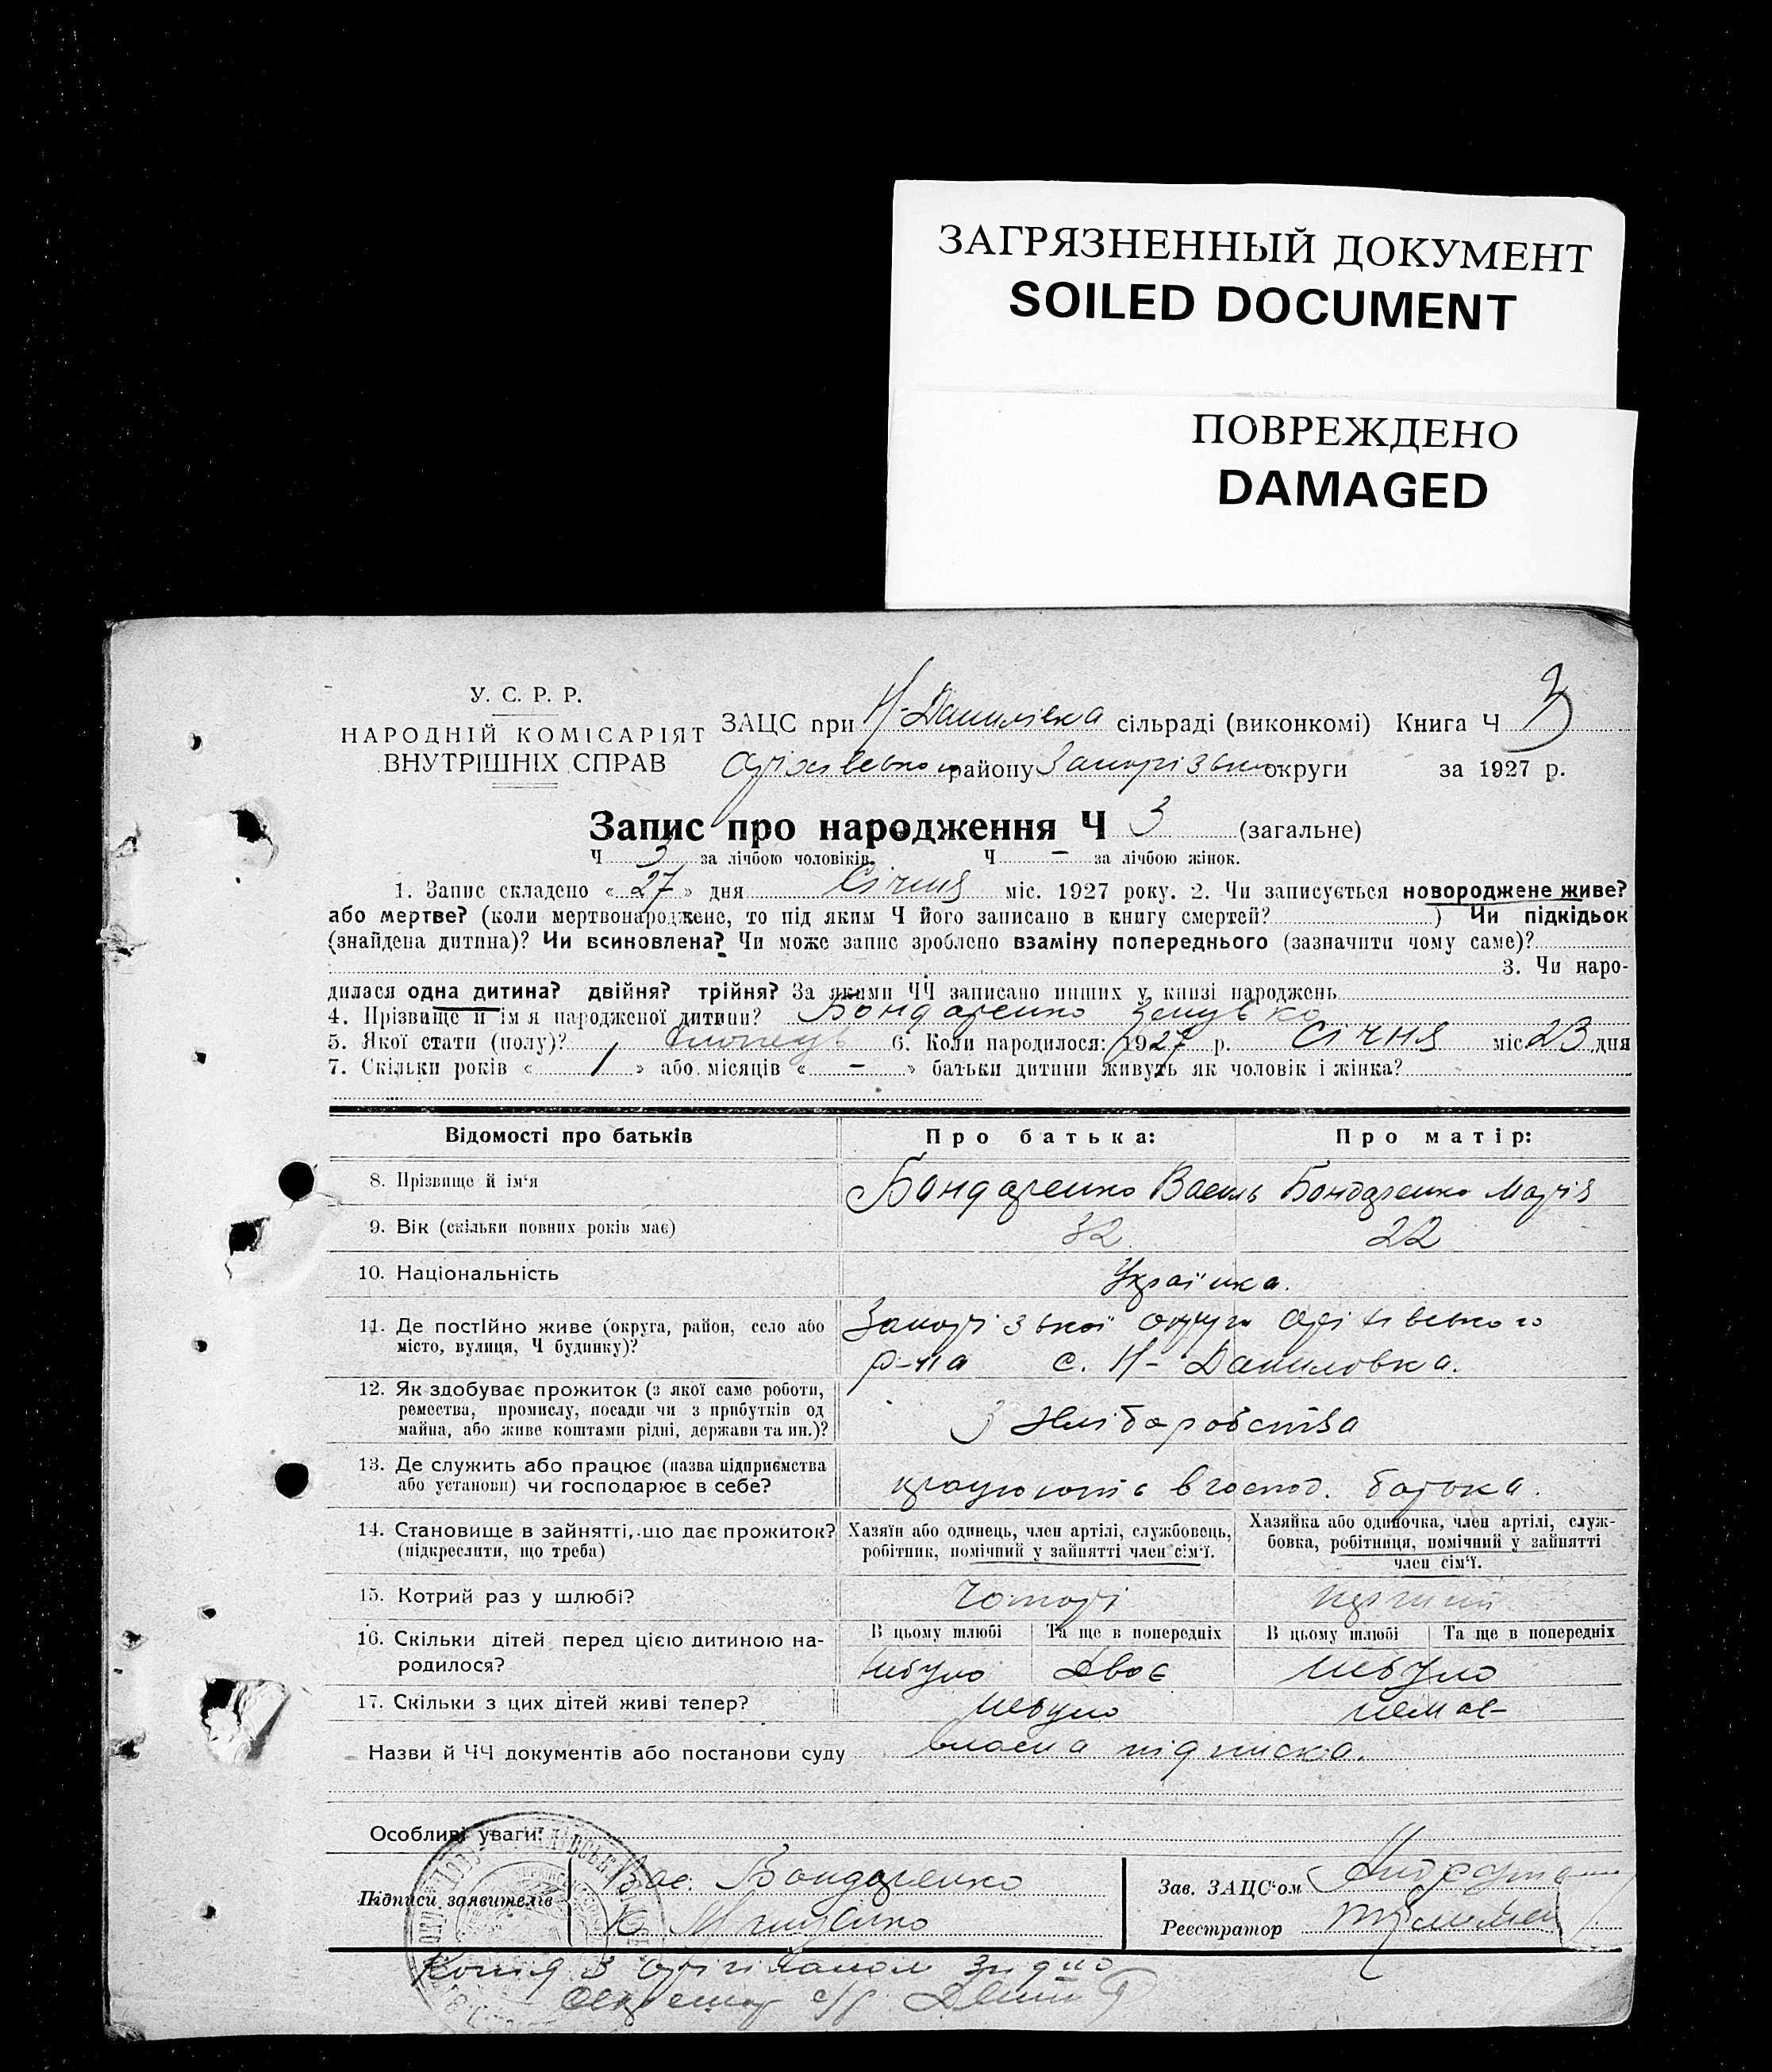 ЗАГРЯЗНЕННЫЙ ДОКУМЕНТ
SOILED DOCUMENT
ПОВРЕЖДЕНО
DAMAGED
У. С. Р. Р.
НАРОДНІЙ КОМІСАРІЯТ
ВНУТРІШНІХ СПРАВ
ЗАЦС при Н-Данилівка сільраді (виконкомі) Книга Ч
району округи за 1927 р.
Запис про народження Ч 3 (загальне)
Ч 3 за лічбою чоловіків. Ч — за лічбою жінок.
1. Запис складено « 27 » дня Січня міс. 1927 року. 2. Чи записується новороджене живе?
або мертве? (коли мертвонароджене, то під яким Ч його записано в книгу смертей? ) Чи підкідьок
(знайдена дитина)? Чи всиновлена? Чи може запис зроблено взаміну попереднього (зазначити чому саме)?
3. Чи наро-
дилася одна дитина? двійня? трійня? За якими ЧЧ записано инших у книзі народжень
4. Прізвище й ім я народженої дитини? Бондаренко
5. Якої стати (полу)? хлопець 6. Коли народилося: 1927 р. Січня міс 23 дня
7. Скільки років « 1 » або місяців « – » батьки дитини живуть як чоловік і жінка?
Відомості про батьків Про батька: Про матір:
8. Прізвище й ім‘я Бондаренко Василь Бондаренко Марія
9. Вік (скільки повних років має) 32 22
10. Національність Українка.
11. Де постійно живе (округа, район, село або
місто, вулиця, Ч будинку)?
Запорізької округи Оріхівського
р-на с. Н-Даниловка.
12. Як здобуває прожиток (з якої саме роботи,
ремества, промислу, посади чи з прибутків од
майна, або живе коштами рідні, держави та ин.)?
З Хліборобства
13. Де служить або працює (назва підприємства
або установи) чи господарює в себе?
в господ. батька.
14. Становище в зайнятті, що дає прожиток?
(підкреслити, що треба)
Хазяїн або одинець, член артілі, службовець,
робітник, помічний у зайнятті член сім‘ї.
Хазяйка або одиночка, член артілі, служ-
бовка, робітниця, помічний у зайнятті
член сім‘ї.
15. Котрий раз у шлюбі?
16. Скільки дітей перед цією дитиною на-
родилося?
В цьому шлюбі Та ще в попередніх В цьому шлюбі Та ще в попередніх
небуло двоє небуло
17. Скільки з цих дітей живі тепер? небуло немає
Назви й ЧЧ документів або постанови суду власна підписка.
Особливі уваги:
Підписи заявителів Вас. Бондаренко
Зав. ЗАЦС‘ом
Реєстратор
Копія з орігіналом згідно
Секретар с/р.